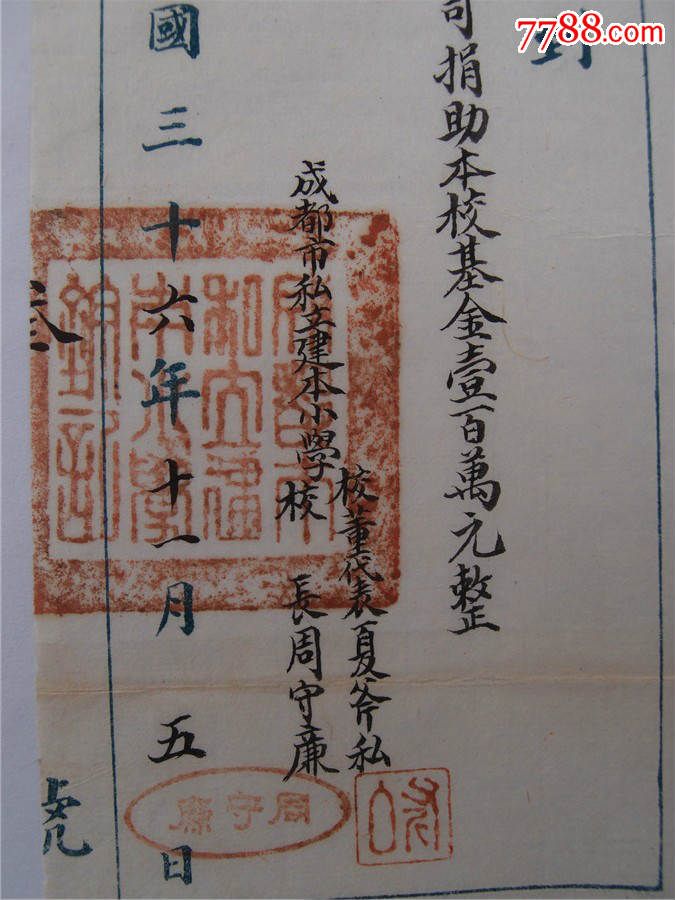 7788.com
到
司捐助本校基金壹百萬元整
校董代表夏斧私
成都市私立建本小學校 長周守廉
國三十六年十一月五日
叁
號
周守廉